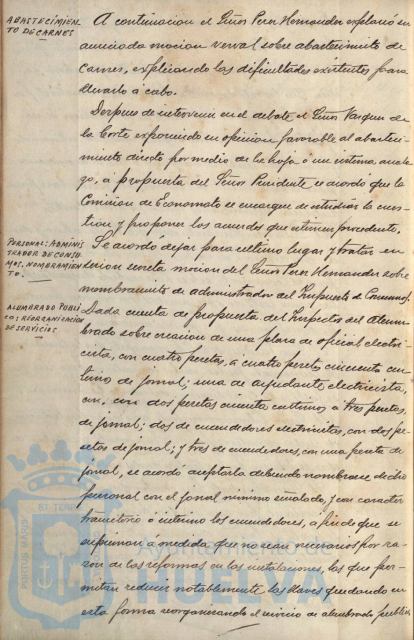 ABASTECIMIEN-
TO DE CARNES
A continuacion el Señor Perez Hernandez explanó su
anunciada mocion verval sobre abastecimiento de
Carnes, explicando las dificultades existentes para
llevarlo á cabo.
Despues de intervenir en el debate el Señor Vazquez de
la Corte exponiendo su opinion favorable al abasteci-
miento directo por medio de la hoja ó un sistema analo-
go, á propuesta del Señor Presidente se acordó que la
Comision de Economato se encargue de estudiar la cues-
tion y proponer los acuerdos que estimen procedente.
PERSONAL: ADMINIS
TRADOR DE CONSU-
MOS. NOMBRAMIEN-
TO.
Se acordó dejar para ultimo lugar y tratar en
sesion secreta mocion del Señor Perez Hernandez sobre
nombramiento de administrador del Impuesto de Consumos.
ALUMBRADO PUBLI
CO: REORGANIZACION
DE SERVICIOS
Dada cuenta de propuesta del Inspector del Alum-
brado sobre creacion de una plaza de oficial electri-
cista, con cuatro pesetas, á cuatro pesetas cincuenta cen-
timos de jornal; una de ayudante electricista,
con, con dos pesetas cincuenta centimos á tres pesetas,
de jornal; dos de encendedores electricistas, con dos pe-
setas de jornal; y tres de encendedores, con una peseta de
jornal, se acordó aceptarla debiendo nombrarse dicho
personal con el jornal minimo señalado, y con caracter
transitorio ó interino los encendedores, á fin de que se
supriman á medida que no sean necesarios por ra-
zon de las reformas en las instalaciones, las que per-
mitan reducir notablemente las llaves quedando en
esta forma reorganizado el servicio de alumbrado publico
PORTUS MARIS
ET TERR
Ayuntamiento de
HUELVA